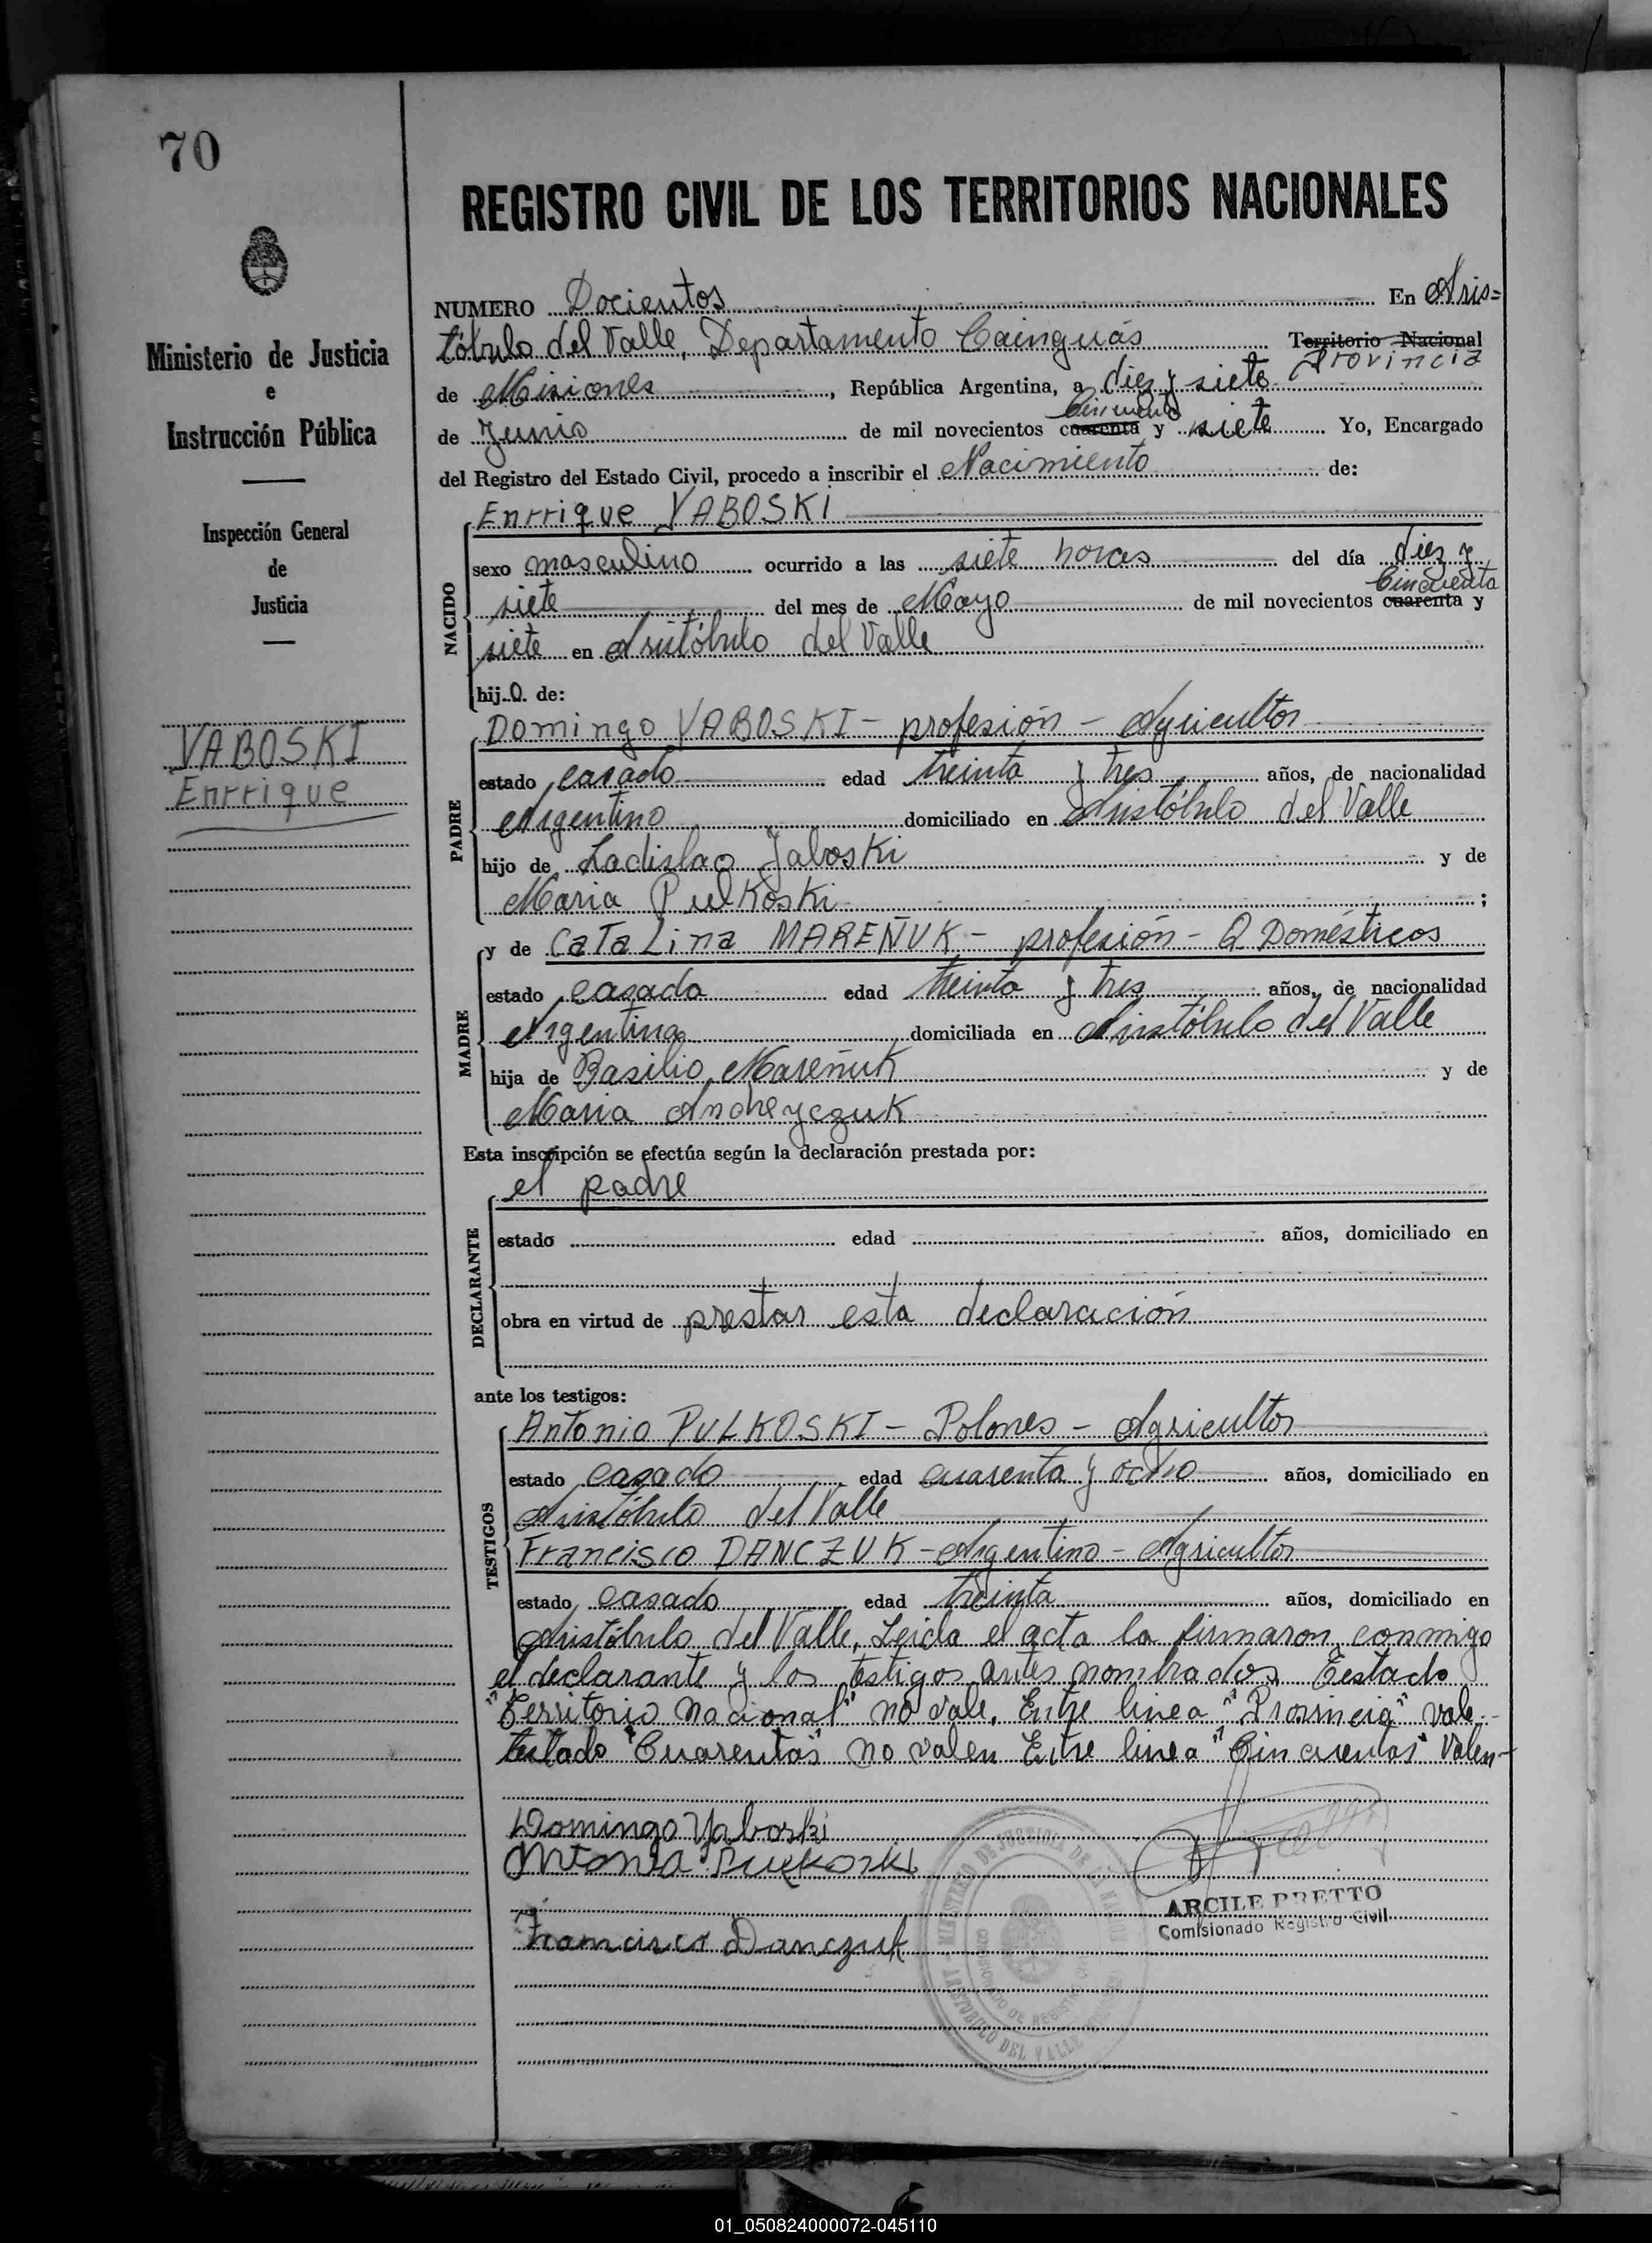 70
REGISTRO CIVIL DE LOS TERRITORIOS NACIONALES
Ministerio de Justicia
e
Instrucción Pública
Inspección General
de
Justicia
YABOSKI
Enrrique
NUMERO Docientos En Aris=
tóbulo del Valle, Departamento Cainguás Territorio Nacional
Provincia
de Misiones, República Argentina, a diez y siete
Cincuenta
de Junio de mil novecientos cuarenta y siete Yo, Encargado
del Registro del Estado Civil, procedo a inscribir el Nacimiento de:
NACIDO
Enrrique YABOSKI
sexo masculino ocurrido a las siete horas del día diez y
Cincuenta
siete del mes de Mayo de mil novecientos cuarenta y
siete en Aristóbulo del Valle
hijo. de:
PADRE
Domingo YABOSKI - profesión - Agricultor
estado casado edad treinta y tres años, de nacionalidad
Argentino domiciliado en Aristóbulo del Valle
hijo de Ladislao Yaboski y de
Maria Pulkoski ;
MADRE
y de CaTaLina MAREÑUK - profesión - Q. Domésticos
estado casada edad treinta y tres años, de nacionalidad
Argentina domiciliada en Aristóbulo del Valle
hija de Basilio Mareñuk y de
Maria Andreyczuk
Esta inscripción se efectúa según la declaración prestada por:
DECLARANTE
el padre
estado edad años, domiciliado en
obra en virtud de prestar esta declaración
ante los testigos:
TESTIGOS
Antonio PULKOSKI - Polones - Agricultor
estado casado edad cuarenta y ocho años, domiciliado en
Aristóbulo del Valle
Francisco DANCZUK - Argentino - Agricultor
estado casado edad treinta años, domiciliado en
Aristóbulo del Valle, Leida el acta la firmaron conmigo
el declarante y los testigos antes nombrados. Testado
"Territorio Nacional" no vale. Entre linea "Provincia" vale -
testado "Cuarentas" no valen Entre linea "Cincuentas" Valen -
Domingo Yaboski
Antonio Pulkoski
Francisco Danczuk
ARCILE PRETTO
Comisionado Registro Civil
MINISTERIO DE JUSTICIA DE LA NACION
COMISIONADO DE REGISTRO CIVIL
ARISTOBULO DEL VALLE
01_050824000072-045110